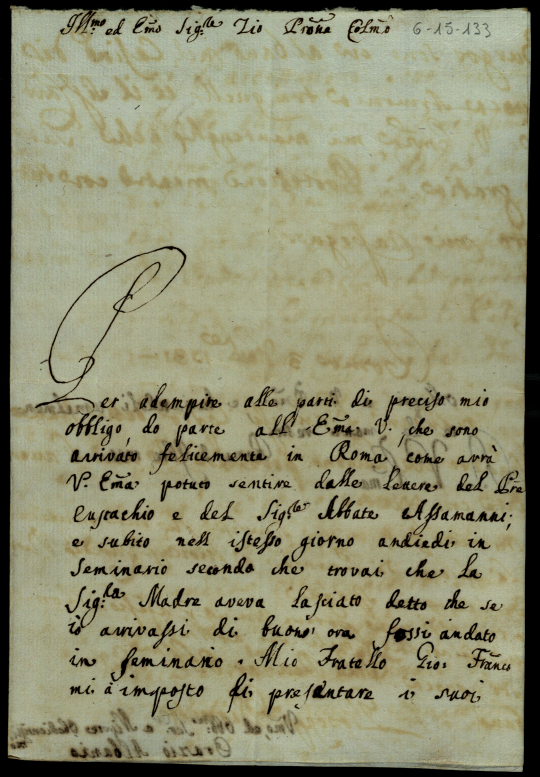 Ill.mo ed Em̃o Sig.re Zio Prõne Col̃mo 6-15-133
Per adempire alle parti di preciso mio
obbligo do parte all' Em̃a V., che sono
arrivato felicemente in Roma come avrà
V. Em̃a potuto sentire dalle Lettere del Pre
Eustachio e del Sig.re Abbate Assamanni;
e subito nell istesso giorno andiedi in
Seminario secondo che trovai che la
Sig.ra Madre aveva lasciato detto che se
io arrivassi di buon' ora fossi andato
in seminario. Mio Fratello Gio: Franco
mi à imposto di presentare i suoi